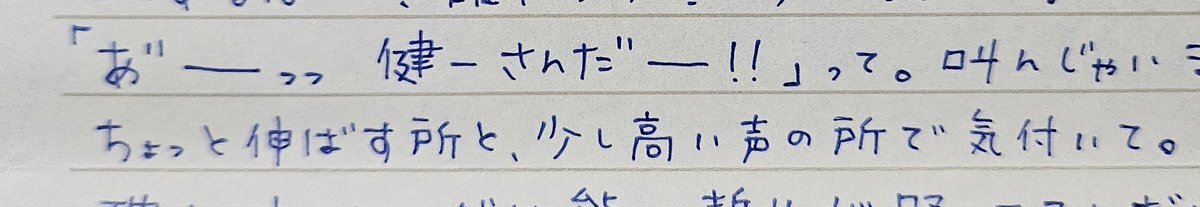 「あ゛ーっっ 健一さんだ ー!!」って。叫んじゃいま
ちょっと伸ばす所と、少し高い声の所で気付いて。